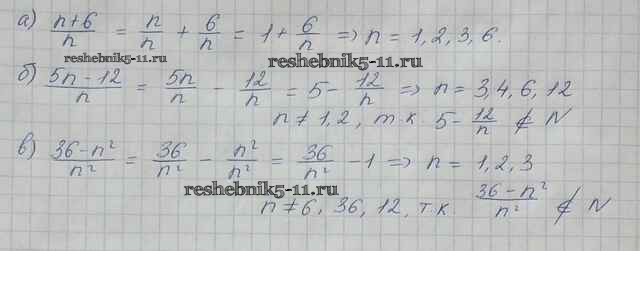 а) (n+6)/n = n/n + 6/n = 1 + 6/n ⇒ n = 1, 2, 3, 6.
reshebnik5-11.ru
б) (5n-12)/n = 5n/n - 12/n = 5 - 12/n ⇒ n = 3, 4, 6, 12
n ≠ 1, 2, т.к. 5 - 12/n ∉ N
в) (36-n²)/n² = 36/n² - n²/n² = 36/n² - 1 ⇒ n = 1, 2, 3
reshebnik5-11.ru
n ≠ 6, 36, 12, т.к. (36-n²)/n² ∉ N